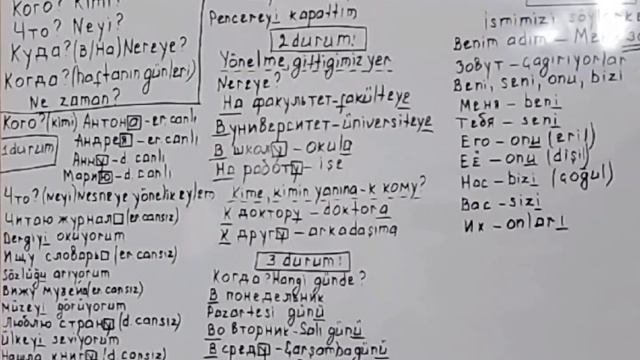 Кого? Kimi?
Что? Neyi?
Куда? (В/На) Nereye?
Когда? (haftanın günleri)
Ne zaman?
Кого? (kimi) Антона - er. canlı
1 durum
Андрея - er. canlı
Анну - d. canlı
Марию - d. canlı
Что? (Neyi) Nesneye yönelik eylem
Читаю журнал (er. cansız)
Dergiyi okuyorum
Ищу словарь (er. cansız)
Sözlüğü arıyorum
Вижу музей (er. cansız)
Müzeyi görüyorum
Люблю страну (d. cansız)
Ülkeyi seviyorum
Нашла книгу (d. cansız)
Pencereyi kapattım
2 durum:
Yönelme, gittiğimiz yer
Nereye?
На факультет - fakülteye
В университет - üniversiteye
В школу - okula
На работу - işe
Kime, kimin yanına - к кому?
К доктору - doktora
К другу - arkadaşıma
3 durum:
Когда? Hangi günde?
В понедельник
Pazartesi günü
Во вторник - Salı günü
В среду - Çarşamba günü
ismimizi
Benim adım -
Зовут - Çağırıyorlar
Beni, seni, onu, bizi
Меня - beni
Тебя - seni
Его - onu (eril)
Её - onu (dişil)
Нас - bizi (çoğul)
Вас - sizi
Их - onları